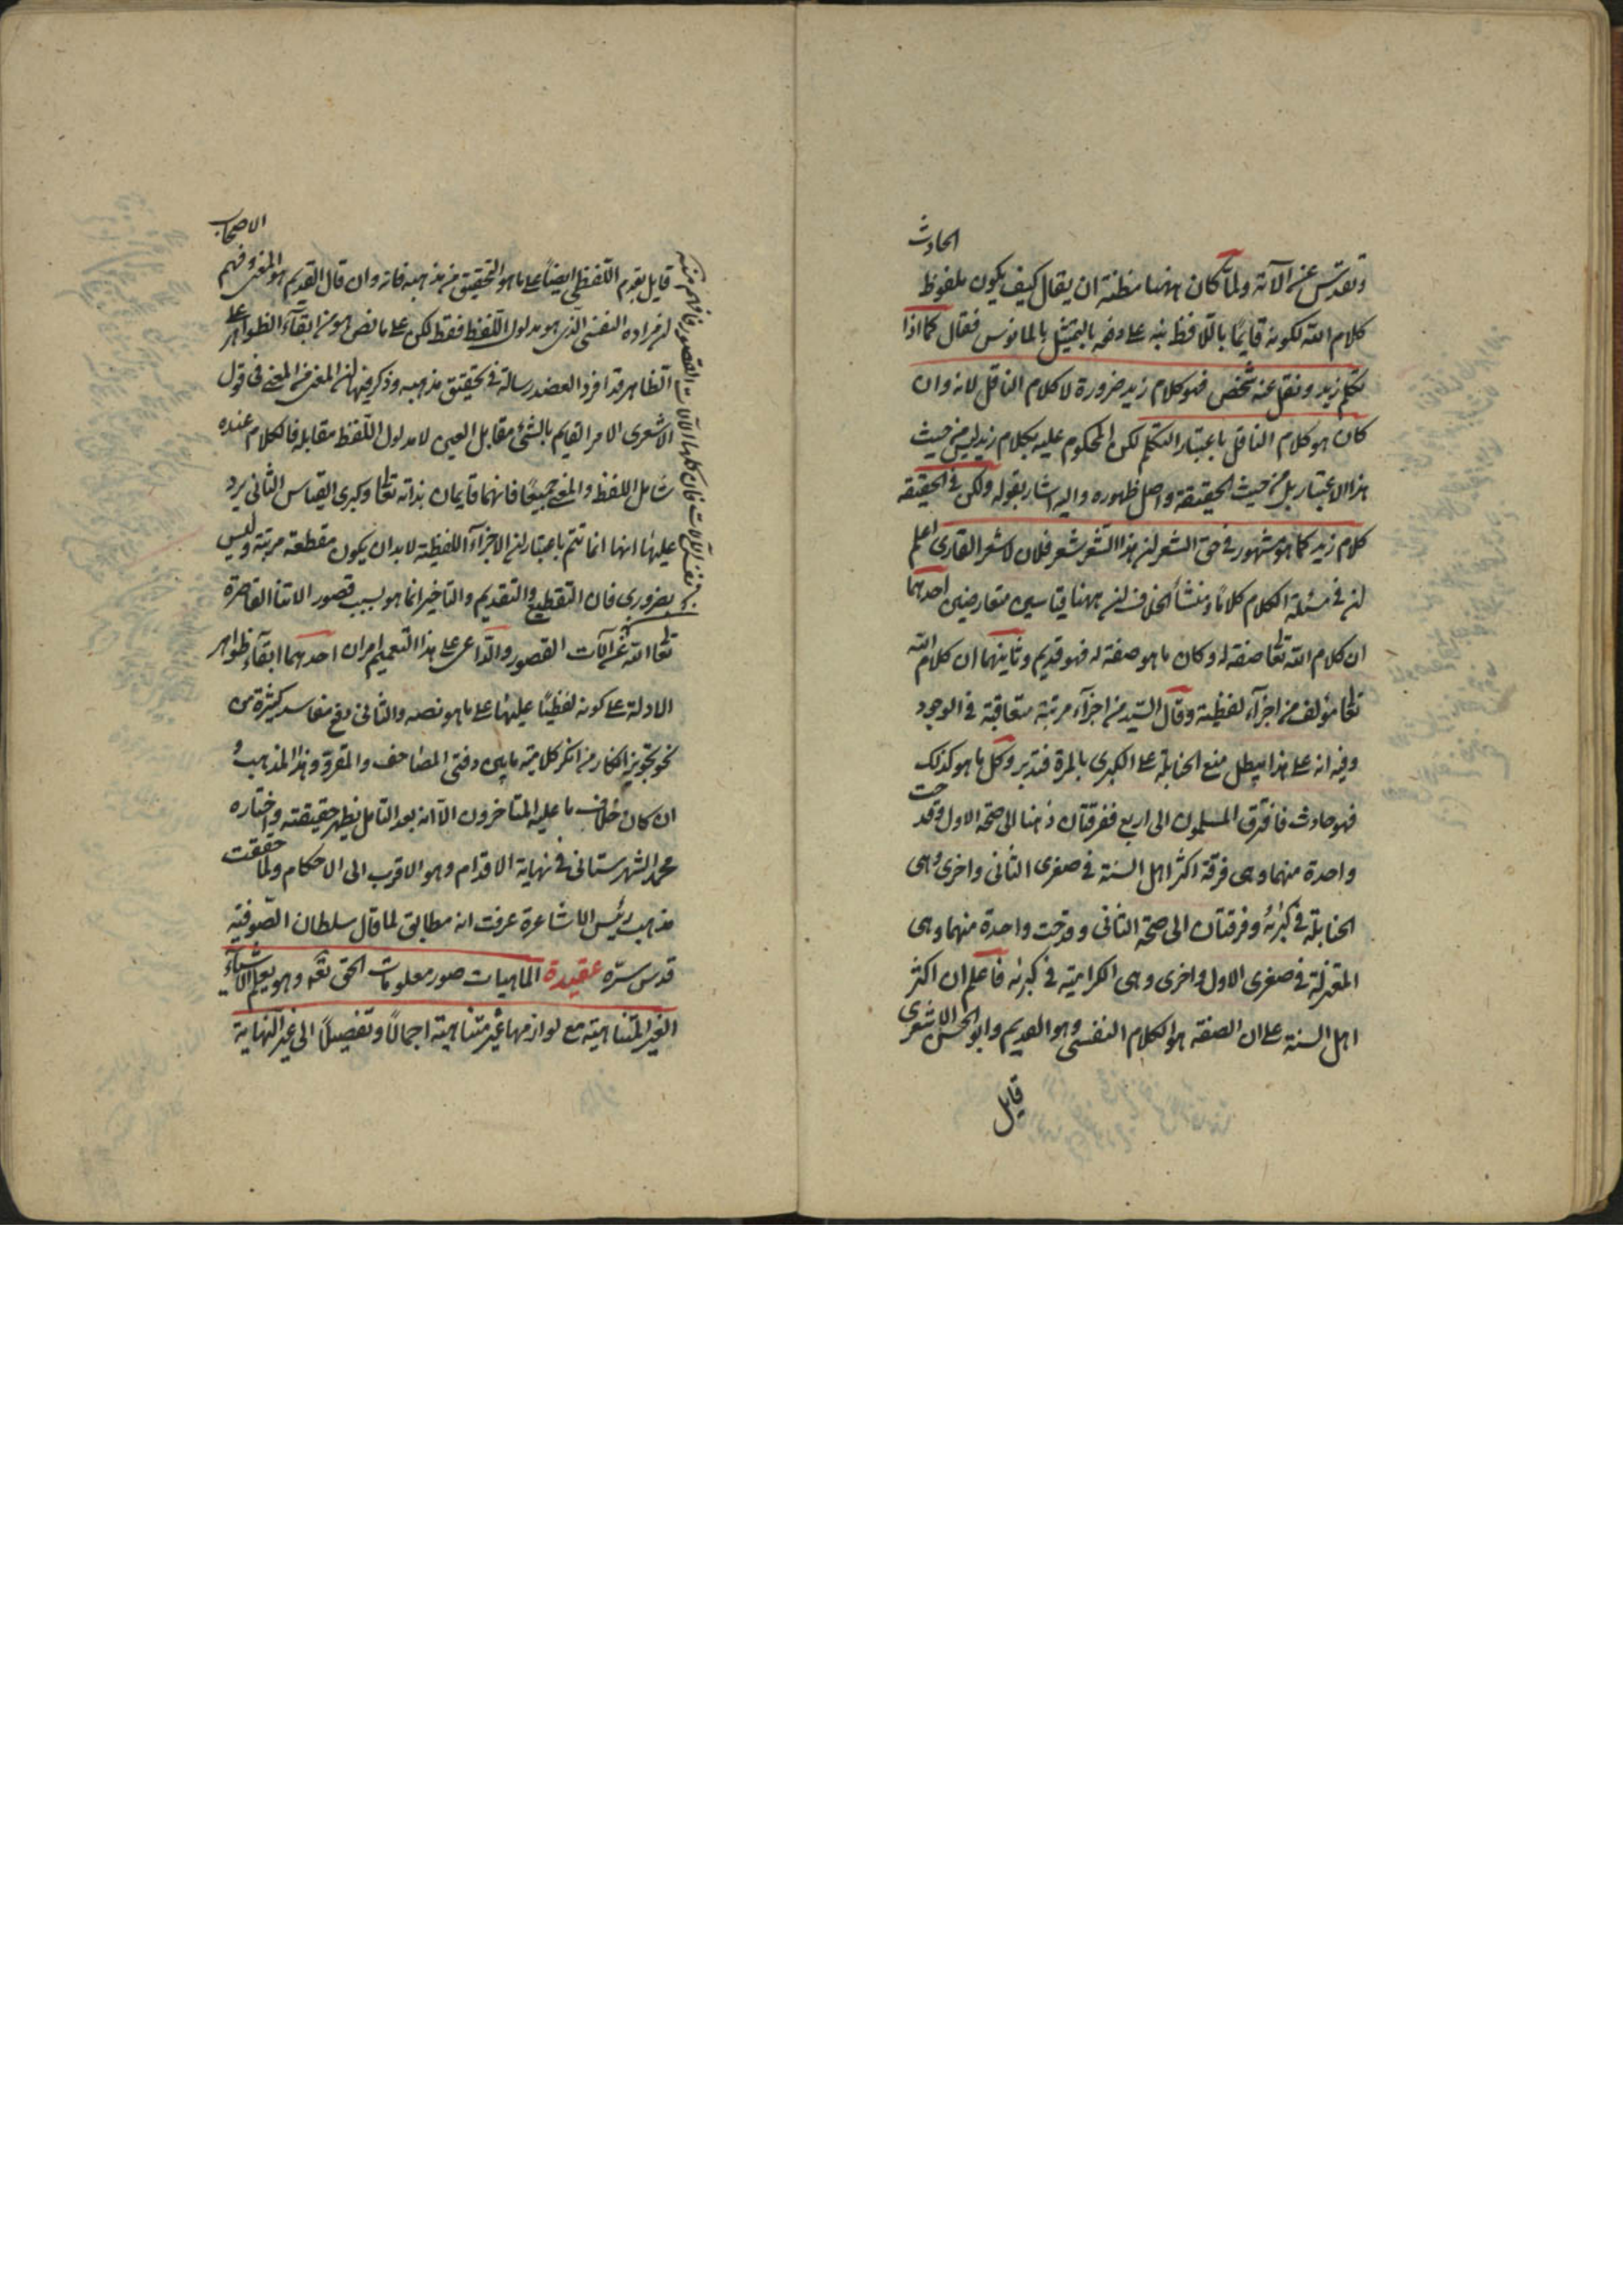 الحادث
وتقدس عن الآلة ولما كان ههنا مظنة ان يقال كيف يكون ملفوظ
كلام الله لكونه قايمًا باللافظ نبه على دفعه بالتمثيل بالمانوس فقال كما اذا
تكلم زيد ونقل عنه شخص فهو كلام زيد ضرورة لا كلام الناقل لانه وان
كان هو كلام الناقل باعتبار التكلم لكن المحكوم عليه بكلام زيد ليس من حيث
هذا الاعتبار بل من حيث الحقيقة واصل ظهوره واليه اشار بقوله ولكن في الحقيقة
كلام زيد كما هو مشهور في حق الشعر ان هذا الشعر شعر فلان لا شعر القارى اعلم
ان في مسئلة الكلام كلامًا ومنشأ الخلاف ان ههنا قياسين متعارضين احدهما
ان كلام الله تعالى صفة له وكان ما هو صفة له فهو قديم وثانيهما ان كلام الله
تعالى مؤلف من اجزآء لفظية وقال السيد من اجزآء مرتبة متعاقبة في الوجود
وفيه انه على هذا يبطل منع الحنابلة على الكبرى بالمرة فتدبر وكل ما هو كذلك
فهو حادث فافترق المسلمون الى اربع ففرقتان ذهبنا الى صحة الاول وقدحت
واحدة منهما وهى فرقة اكثر اهل السنة في صغرى الثانى واخرى وهى
الحنابلة في كبراه وفرقتان الى صحة الثانى وقدحت واحدة منهما وهى
المعتزلة في صغرى الاول واخرى وهى الكرامية في كبراه فاعلم ان اكثر
اهل السنة على ان الصفة هو الكلام النفسى وهو القديم وابو الحسن الاشعرى
قايل
الاصحاب
قايل بقدم اللفظى ايضًا على ما هو التحقيق من مذهبه فانه وان قال القديم هو المعنى وفهم
ان مراده النفسى الذى هو مدلول اللفظ فقط لكن على ما نص هو من ابقآء الظواهر على
الظاهر قد افرد العضد رسالة في تحقيق مذهبه وذكر فيها ان المعنى من المعنى فى قول
الاشعرى الامر القايم بالشئ مقابل العين لا مدلول اللفظ مقابله فالكلام عنده
شامل اللفظ والمعنى جميعًا فانهما قايمان بذاته تعالى وكبرى القياس الثانى يرد
عليها انها انما تتم باعتبار ان الاجزآء اللفظية لا بد ان يكون مقطعة مرتبة وليس
بضرورى فان التقطيع والتقديم والتاخير انما هو بسبب قصور الاتنا القاصرة
تعالى الله عن آلات القصور والداعى على هذا التعميم امران احدهما ابقآء ظواهر
الادلة على كونه لفظيًا عليها على ما هو نصه والثانى دفع مفاسد كثيرة من
نحو تجويز انكار من انكر كلامية ما بين دفتى المصاحف والمقروّ وهذا المذهب و
ان كان خلاف ما عليه المتاخرون الا انه بعد التامل يظهر حقيقته واختاره
محمد الشهرستانى في نهاية الاقدام وهو الاقرب الى الاحكام ولما حققت
مذهب رئيس الاشاعرة عرفت انه مطابق لما قال سلطان الصوفية
قدس سره عقيدة الماهيات صور معلومات الحق تعالى وهو يعلم الاشيآء
الغير المتناهية مع لوازمها غير متناهية اجمالًا وتفصيلًا الى غير النهاية